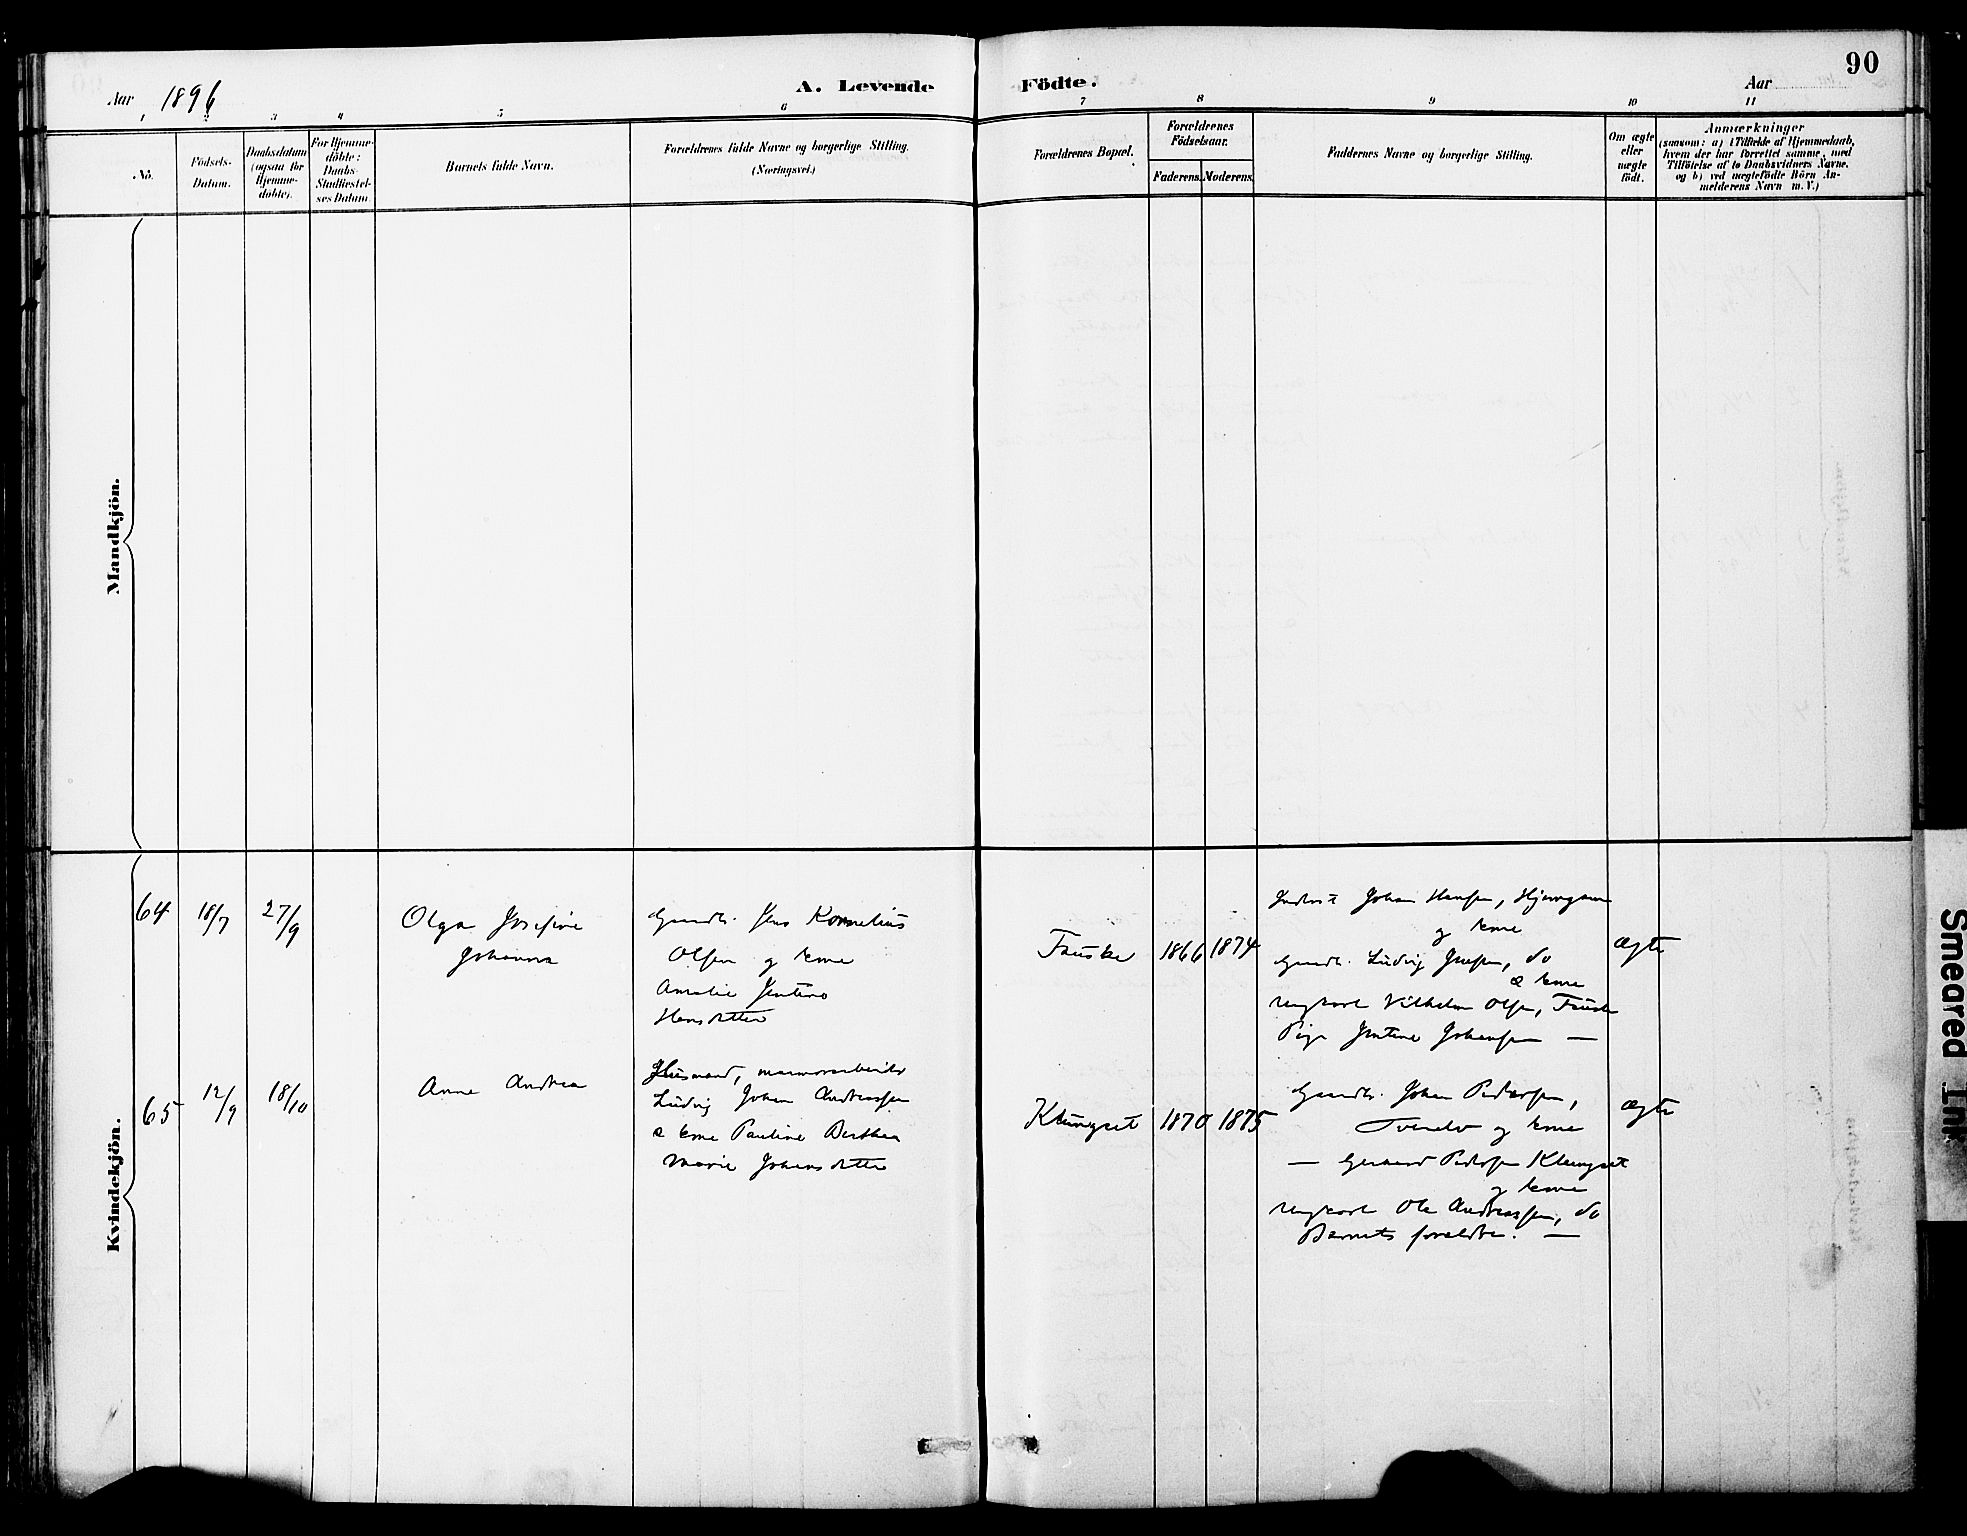 90
Aar 1896
A. Levende Födte.
Aar
1 2 3 4 5 6 7 8 9 10 11
No.
Födsels-
Datum.
Daabsdatum
(ogsaa for
Hjemme-
döbte).
For Hjemme-
döbte:
Daabs-
Stadfæstel-
ses Datum
Barnets fulde Navn.
Forældrenes fulde Navne og borgerlige Stilling.
(Næringsvei.)
Forældrenes Bopæl.
Forældrenes
Födselsaar.
Faderens. Moderens.
Faddernes Navne og borgerlige Stilling.
Om ægte
eller
uægte
födt.
Anmærkninger
(saasom: a) i Tilfælde af Hjemmedaab,
hvem der har forrettet samme, med
Tilföielse af to Daabsvidners Navne.
og b) ved uægtefödte Börn An-
melderens Navn m. V.)
Mandkjön.
Kvindekjön.
64
18/7
27/9
Olga Josefine
Johanna
Gaardb. Jens Kornelius
Olsen og kone
Amalie Jentine
Hansdatter
Fauske
1866
1874
Johan Hansen, Hjemgam
og kone
Gaardb. Ludvig Jensen, do
& kone
Ungkarl Vilhelm Olsen, Fauske
Pige Jentine Johansen —
ægte
65
12/9
18/10
Anne Andrea
Husmand, marmorarbeider
Ludvig Johan Andreassen
& kone Pauline Berthea
Marie Johansdatter
Klungset
1870
1875
Gaardb. Johan Pedersen,
Tverelv og kone
— Gerhard Pedersen Klungset
og kone
Ungkarl Ole Andreassen, do
Barnets forældre. —
ægte
Smeared Ink